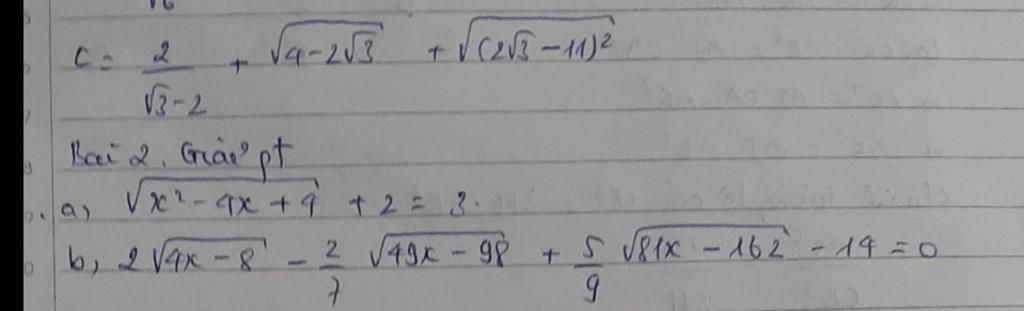 √6
C = 2/(√3 - 2) + √(4 - 2√3) + √((2√3 - 11)²)
Bài 2. Giải pt
a, √(x² - 4x + 4) + 2 = 3.
b, 2√(4x - 8) - 2/7 √(49x - 98) + 5/9 √(81x - 162) - 14 = 0